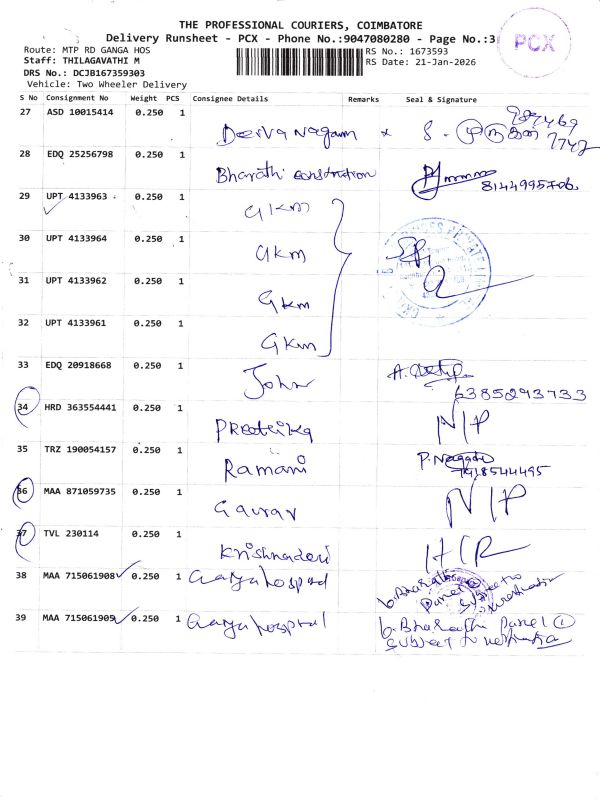 THE PROFESSIONAL COURIERS, COIMBATORE
Delivery Runsheet - PCX - Phone No.:9047080280 - Page No.:3
PCX
Route: MTP RD GANGA HOS
RS No.: 1673593
Staff: THILAGAVATHI M
RS Date: 21-Jan-2026
DRS No.: DCJB167359303
Vehicle: Two Wheeler Delivery
S No Consignment No Weight PCS Consignee Details Remarks Seal & Signature
27 ASD 10015414 0.250 1
28 EDQ 25256798 0.250 1 Bharathi construction
29 UPT 4133963 0.250 1 GKM
30 UPT 4133964 0.250 1 GKM
31 UPT 4133962 0.250 1 GKM
32 UPT 4133961 0.250 1 GKM
33 EDQ 20918668 0.250 1 John
6385293733
34 HRD 363554441 0.250 1 N/P
35 TRZ 190054157 0.250 1 Ramani
36 MAA 871059735 0.250 1 Gaurav N/P
37 TVL 230114 0.250 1 Krishnadevi
38 MAA 715061908 0.250 1
39 MAA 715061909 0.250 1 b. Bharathi Panel